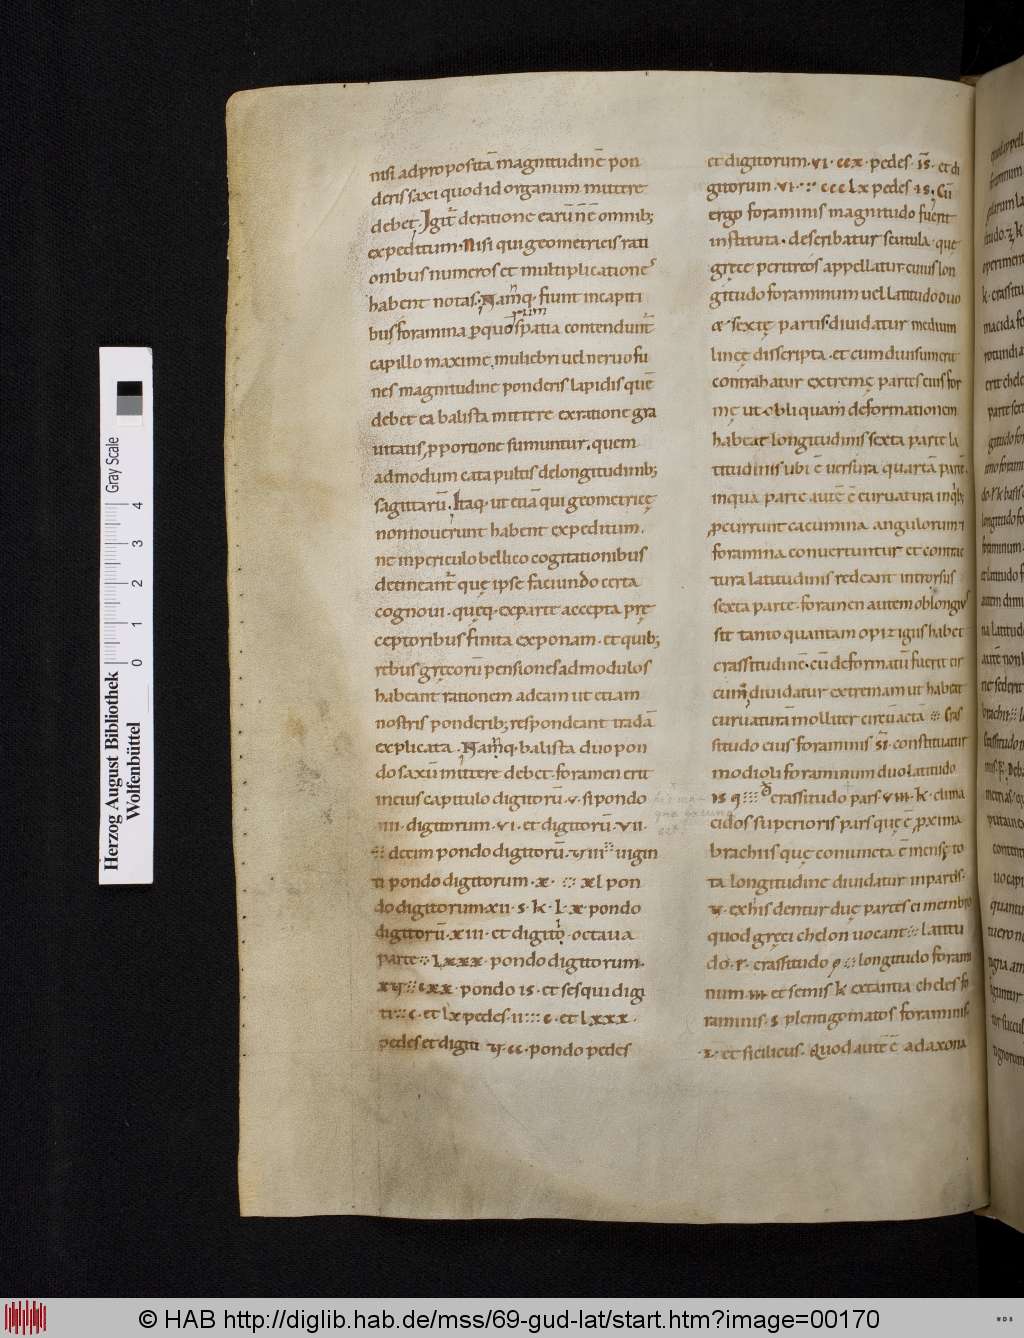 nisi adpropositā magnitudinē pon
deris saxi quod id organum mittere
debet. Igit̄ deratione earū nē omnib;
expeditum. Nisi qui geometricis rati
onibus numeros et multiplicatione
habent notas. Namq· fiunt incapiti
bus foramina p quorum spatia contendunt̄
capillo maxime muliebri uel neruo fu
nes magnitudine ponderis lapidis quē
debet ea balista mittere exeratione gra
uitatis, pportione sumuntur. quem
admodum catapultis delongitudinib;
sagittarū. Itaq· ut etiā qui geometricę
non nouerunt habent expeditum.
ne inpericulo bellico cogitationibus
detineant̄ quę ipse faciundo certa
cognoui. quęq· exparte accepta prę
ceptoribus finita exponam. et quib;
rebus gręcorū pensiones admodulos
habeant rationem adeam ut etiam
nostris ponderib; respondeant tradā
explicata. Namq· balista duo pon
do saxū mittere debet foramen erit
incius capitulo digitorū·v· si pondo
iiii· digitorum·vi· et digitorū·vii·
decim pondo digitorū· uigin
ti pondo digitorum·x· xl pon
do digitorum·xii·s·k·l·x· pondo
digitorū·xiii· et digiti octaua
parte lxxx· pondo digitorum·
cxx· pondo is· et sesqui digi
ti c· et lx pedes ii c· et lxxx·
pedes et digiti cc· pondo pedes
et digitorum·vi·ccx· pedes·is· et di
gitorum·vi· ccclx pedes is. Cū
ergo foraminis magnitudo fuerit
instituta· describatur scutula· quę
gręce peritretos appellatur cuius lon
gitudo foraminum uel latitudo duo
& sextę partis· diuidatur medium
linee disscripta· et cum diuisum erit
contrahatur extremę partes eius for
mę ut obliquam deformationem
habeat longitudinis sexta parte la
titudinis ubi ē uersura quartā partē·
inqua parte autē ē curuatura inq̇b;
pcurrunt cacumina angulorum &
foramina conuertuntur et contrac
tura latitudinis redeant introrsus
sexta parte· foramen autem oblongius
sit tanto quantam opizigus habet
crassitudinē· cū deformatū fuerit cir
cum diuidatur extremam ut habeat
curuaturā molliter circū actā Cras
situdo eius foraminis s̄i· constituatur
modioli foraminum duo latitudo
is q crassitudo pars·viii·k· clima
cidos superioris pars quę ē pxima
brachiis quę coniuncta ē mensę to
ta longitudine diuidatur inpartes·
v· exhis dentur duę partes ei membro
quod gręci chelon uocant latitu
do·r· crassitudo longitudo foram
num·iii· et semis k extantia cheles fo
raminis·s plentigomatos foraminis·
z· et sicilicus· Quod autē ē adaxona
Herzog August Bibliothek
Wolfenbüttel
Gray Scale
0 1 2 3 4
© HAB http://diglib.hab.de/mss/69-gud-lat/start.htm?image=00170